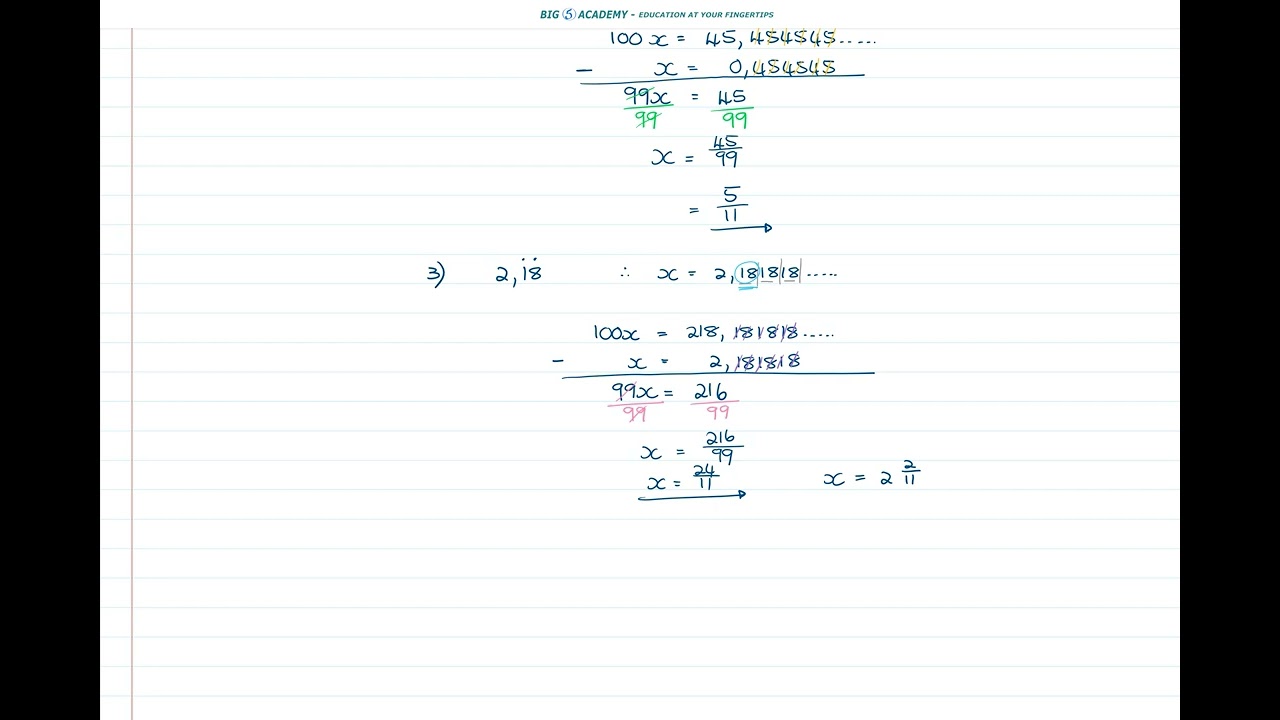 BIG 5 ACADEMY - EDUCATION AT YOUR FINGERTIPS
100x = 45,454545.....
- x = 0,454545
99x/99 = 45/99
x = 45/99
= 5/11
3) 2,1̇8̇ ∴ x = 2,181818.....
100x = 218,181818.....
- x = 2,181818
99x/99 = 216/99
x = 216/99
x = 24/11 x = 2 2/11